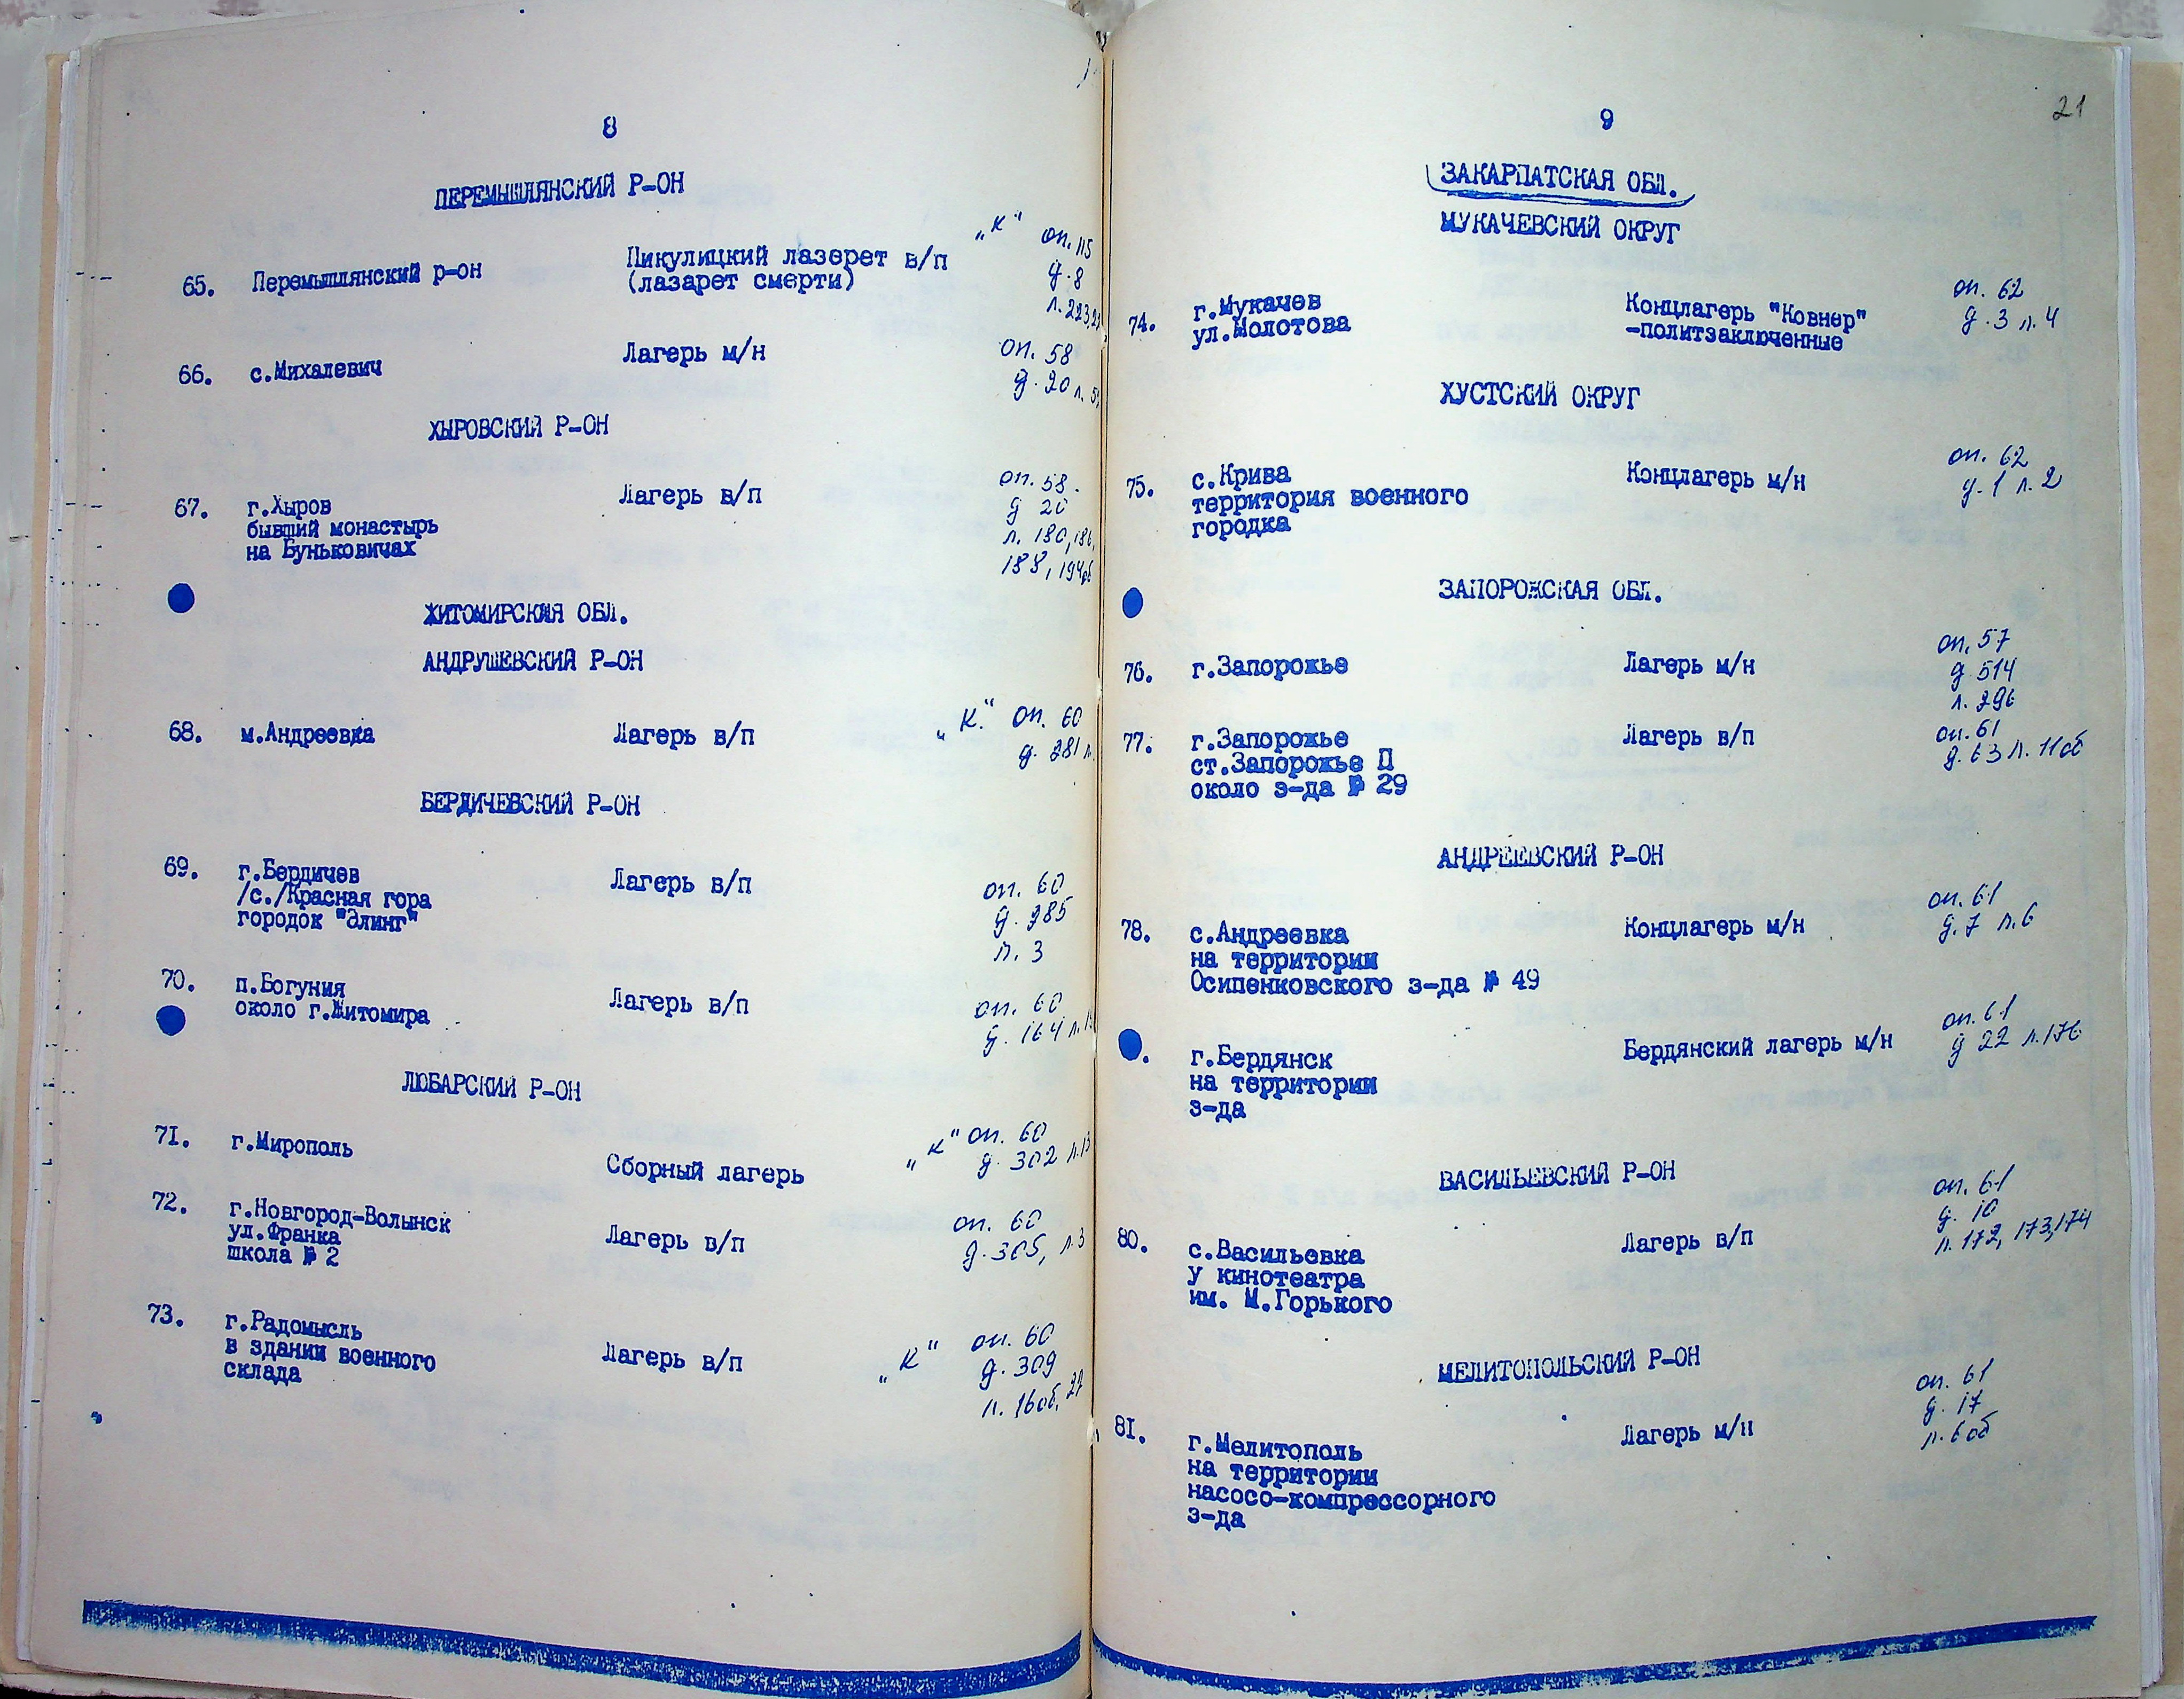 8
ПЕРЕМЫШЛЯНСКИЙ Р-ОН
65. Перемышлянский р-он
Пикулицкий лазерет в/п
(лазарет смерти)
"К" оп. 115
д. 8
л. 223,
66. с.Михалевич
Лагерь м/н
оп. 58
д. 20 л.
ХЫРОВСКИЙ Р-ОН
67. г.Хыров
бывший монастырь
на Буньковичах
Лагерь в/п
оп. 58
д 20
л. 180, 186,
188, 194об
ЖИТОМИРСКАЯ ОБЛ.
АНДРУШЕВСКИЙ Р-ОН
68. м.Андреевка
Лагерь в/п
"К" оп. 60
д. 281 л.
БЕРДИЧЕВСКИЙ Р-ОН
69. г.Бердичев
/с./Красная гора
городок "Элинг"
Лагерь в/п
оп. 60
д. 285
л. 3
70. п.Богуния
около г.Житомира
Лагерь в/п
оп. 60
д. 164 л.
ЛЮБАРСКИЙ Р-ОН
71. г.Мирополь
Сборный лагерь
"К" оп. 60
д. 302 л.13
72. г.Новгород-Волынск
ул.Франка
школа № 2
Лагерь в/п
оп. 60
д. 305, л.3
73. г.Радомысль
в здании военного
склада
Лагерь в/п
"К" оп. 60
д. 309
л. 16об, 22
21
9
ЗАКАРПАТСКАЯ ОБЛ.
МУКАЧЕВСКИЙ ОКРУГ
74. г.Мукачев
ул.Молотова
Концлагерь "Ковнер"
-политзаключенные
оп. 62
д. 3 л. 4
ХУСТСКИЙ ОКРУГ
75. с.Крива
территория военного
городка
Концлагерь м/н
оп. 62
д. 1 л. 2
ЗАПОРОЖСКАЯ ОБЛ.
76. г.Запорожье
Лагерь м/н
оп. 57
д 514
л. 296
77. г.Запорожье
ст.Запорожье П
около з-да № 29
Лагерь в/п
оп. 61
д. 63 л. 11об
АНДРЕЕВСКИЙ Р-ОН
78. с.Андреевка
на территории
Осипенковского з-да № 49
Концлагерь м/н
оп. 61
д. 7 л. 6
. г.Бердянск
на территории
з-да
Бердянский лагерь м/н
оп. 61
д 22 л.176
ВАСИЛЬЕВСКИЙ Р-ОН
80. с.Васильевка
у кинотеатра
им. М.Горького
Лагерь в/п
оп. 61
д. 10
л. 172, 173,174
МЕЛИТОПОЛЬСКИЙ Р-ОН
81. г.Мелитополь
на территории
насосо-компрессорного
з-да
Лагерь м/н
оп. 61
д. 17
л. 6об